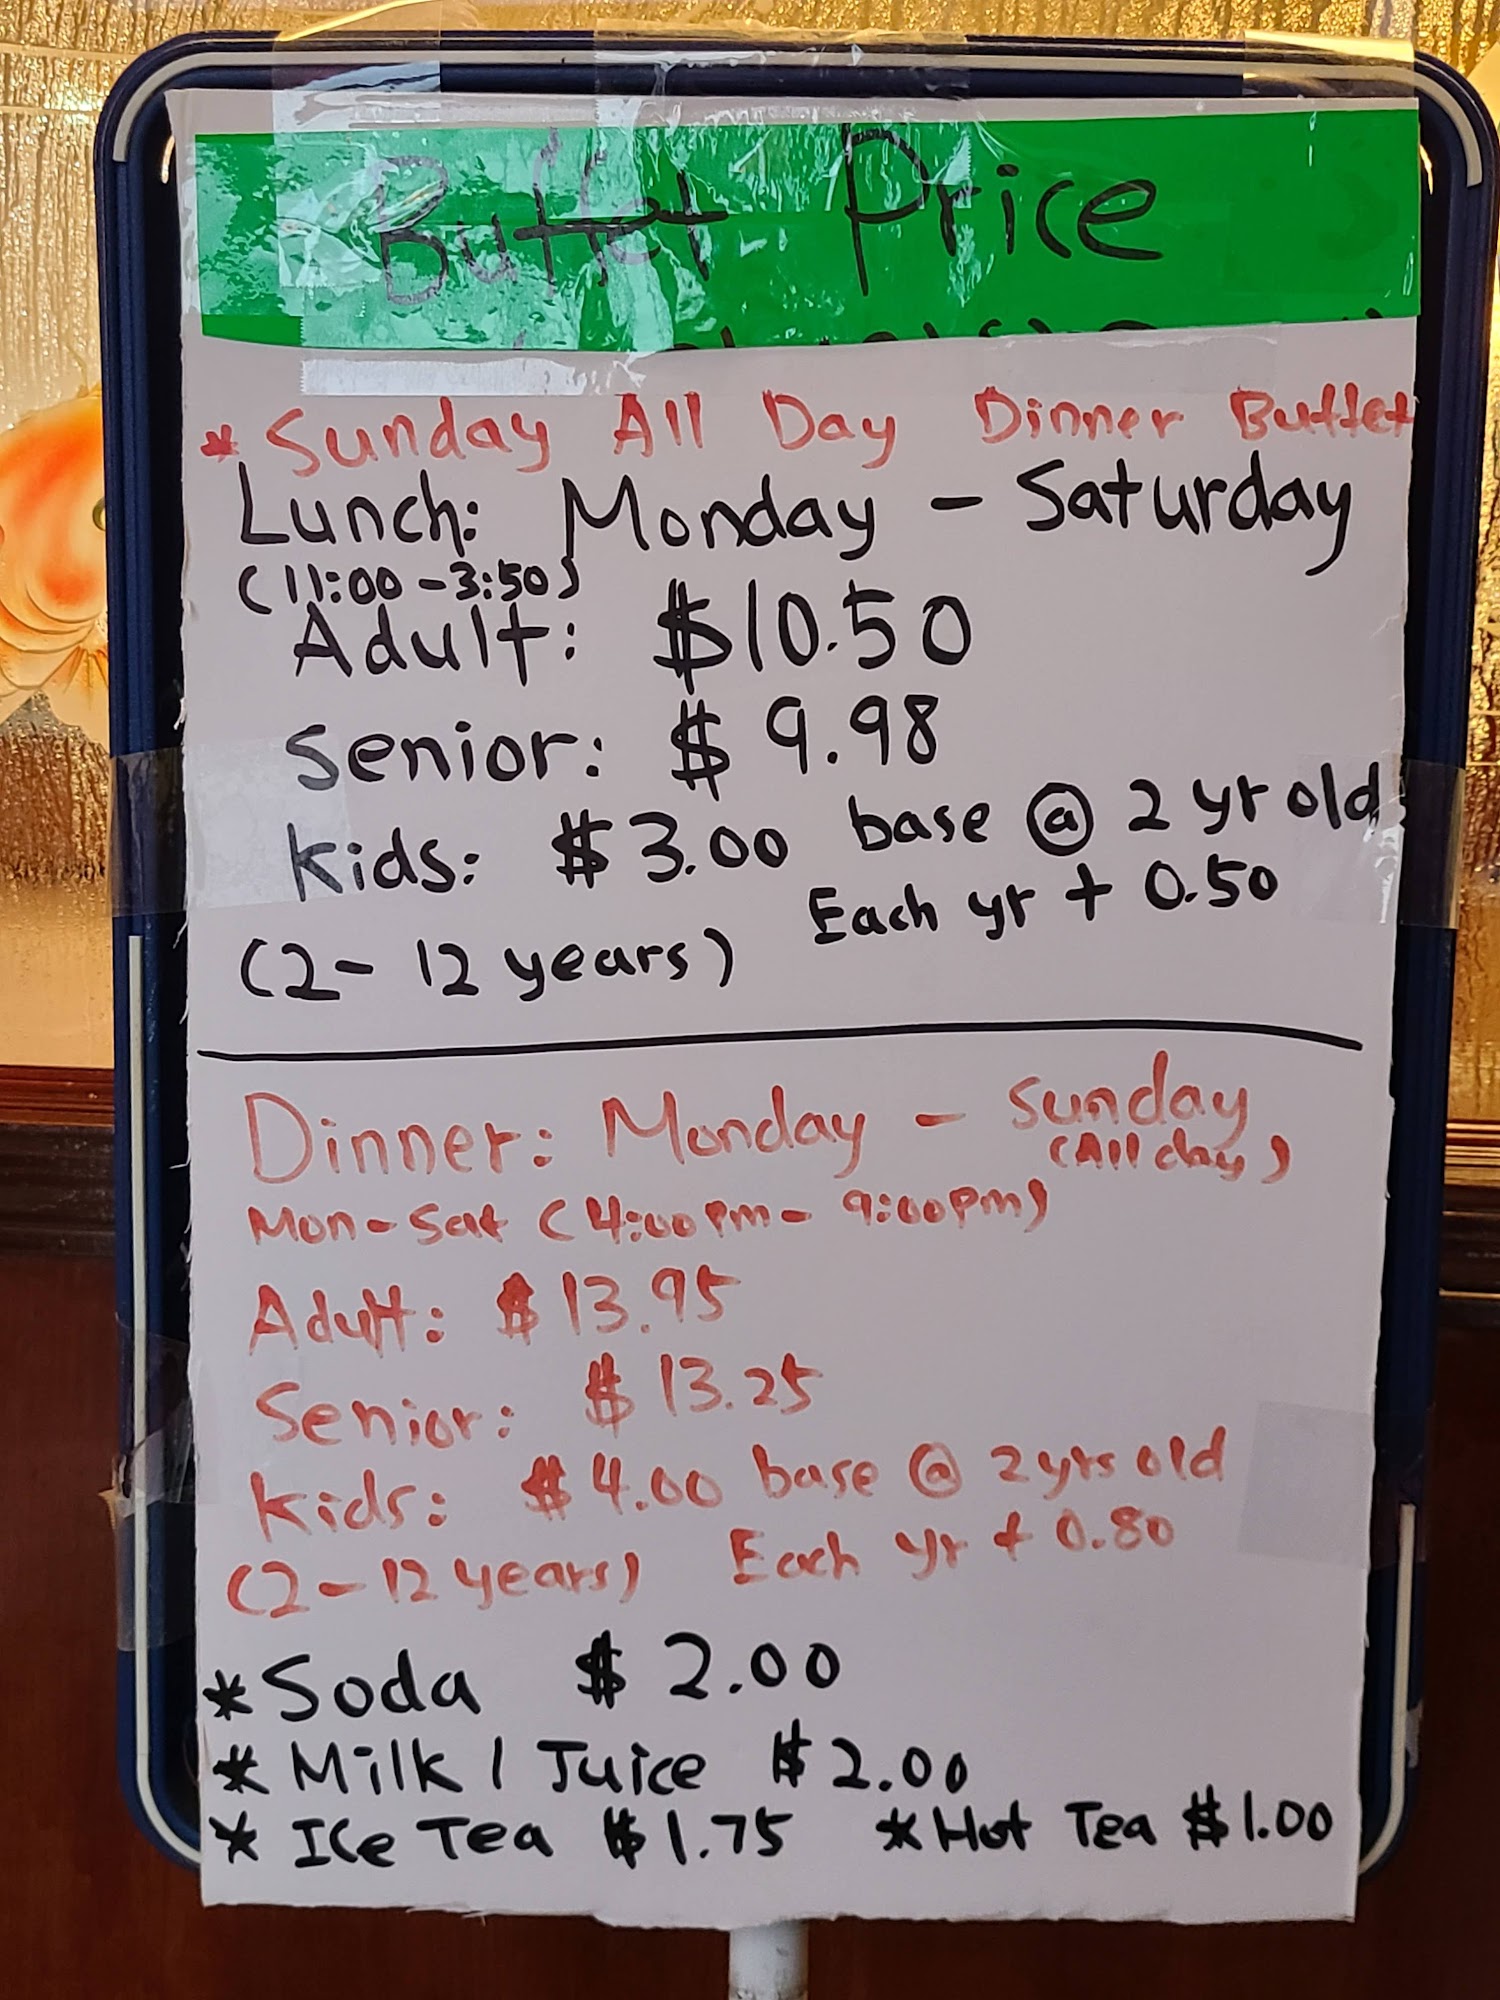 Buffet Price
* Sunday All Day Dinner Buffet
Lunch: Monday - Saturday
(11:00 - 3:50)
Adult: $10.50
Senior: $9.98
Kids: $3.00 base @ 2 yr old
Each yr + 0.50
(2 - 12 years)
Dinner: Monday - Sunday
(All day)
Mon - Sat (4:00pm - 9:00pm)
Adult: $13.95
Senior: $13.25
Kids: $4.00 base @ 2 yrs old
(2 - 12 years) Each yr + 0.80
* Soda $2.00
* Milk / Juice $2.00
* Ice Tea $1.75 * Hot Tea $1.00